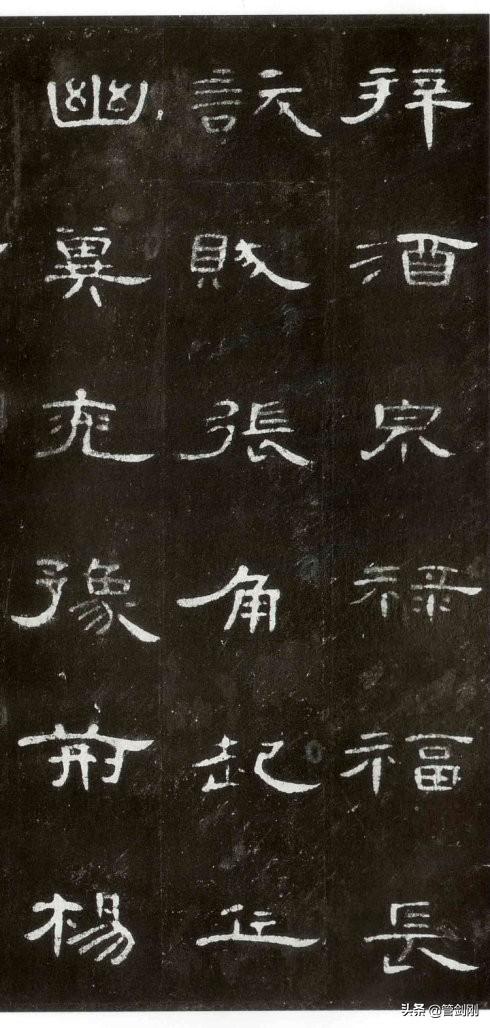 拜酒泉祿福長
訞賊張角起兵
幽冀兗豫荊楊
头条 @管剑刚